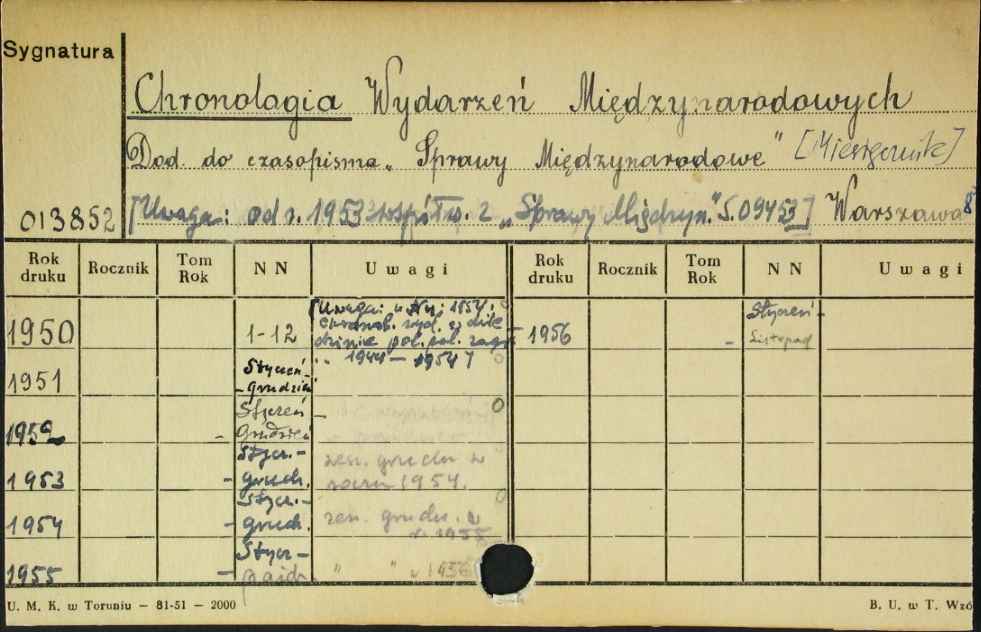 Sygnatura
Chronologia Wydarzeń Międzynarodowych
Dod. do czasopisma „Sprawy Międzynarodowe" [Miesięcznik]
013852 [Uwaga: od r. 1953 współwyd. z „Sprawy Międzyn." S. 09453] Warszawa 8°
Rok druku Rocznik Tom Rok NN Uwagi Rok druku Rocznik Tom Rok NN Uwagi
1950 1-12 [Uwaga: w Nrj 1954.
chronol. wyd. z dzie
dzinie pol. zagr.
1944 – 1954]
1956 – Styczeń -
Listopad
1951 Styczeń -
- grudzień
1952 Styczeń -
- Grudzień
1953 Stycz. -
- grudz. zesz. grudn. w
1954.
1954 Stycz. -
- grudz. zesz. grudn. w
r. 1955
1955 Stycz -
- paźdz. " " " 1956
U. M. K. w Toruniu — 81-51 — 2000
B. U. w T. Wzó